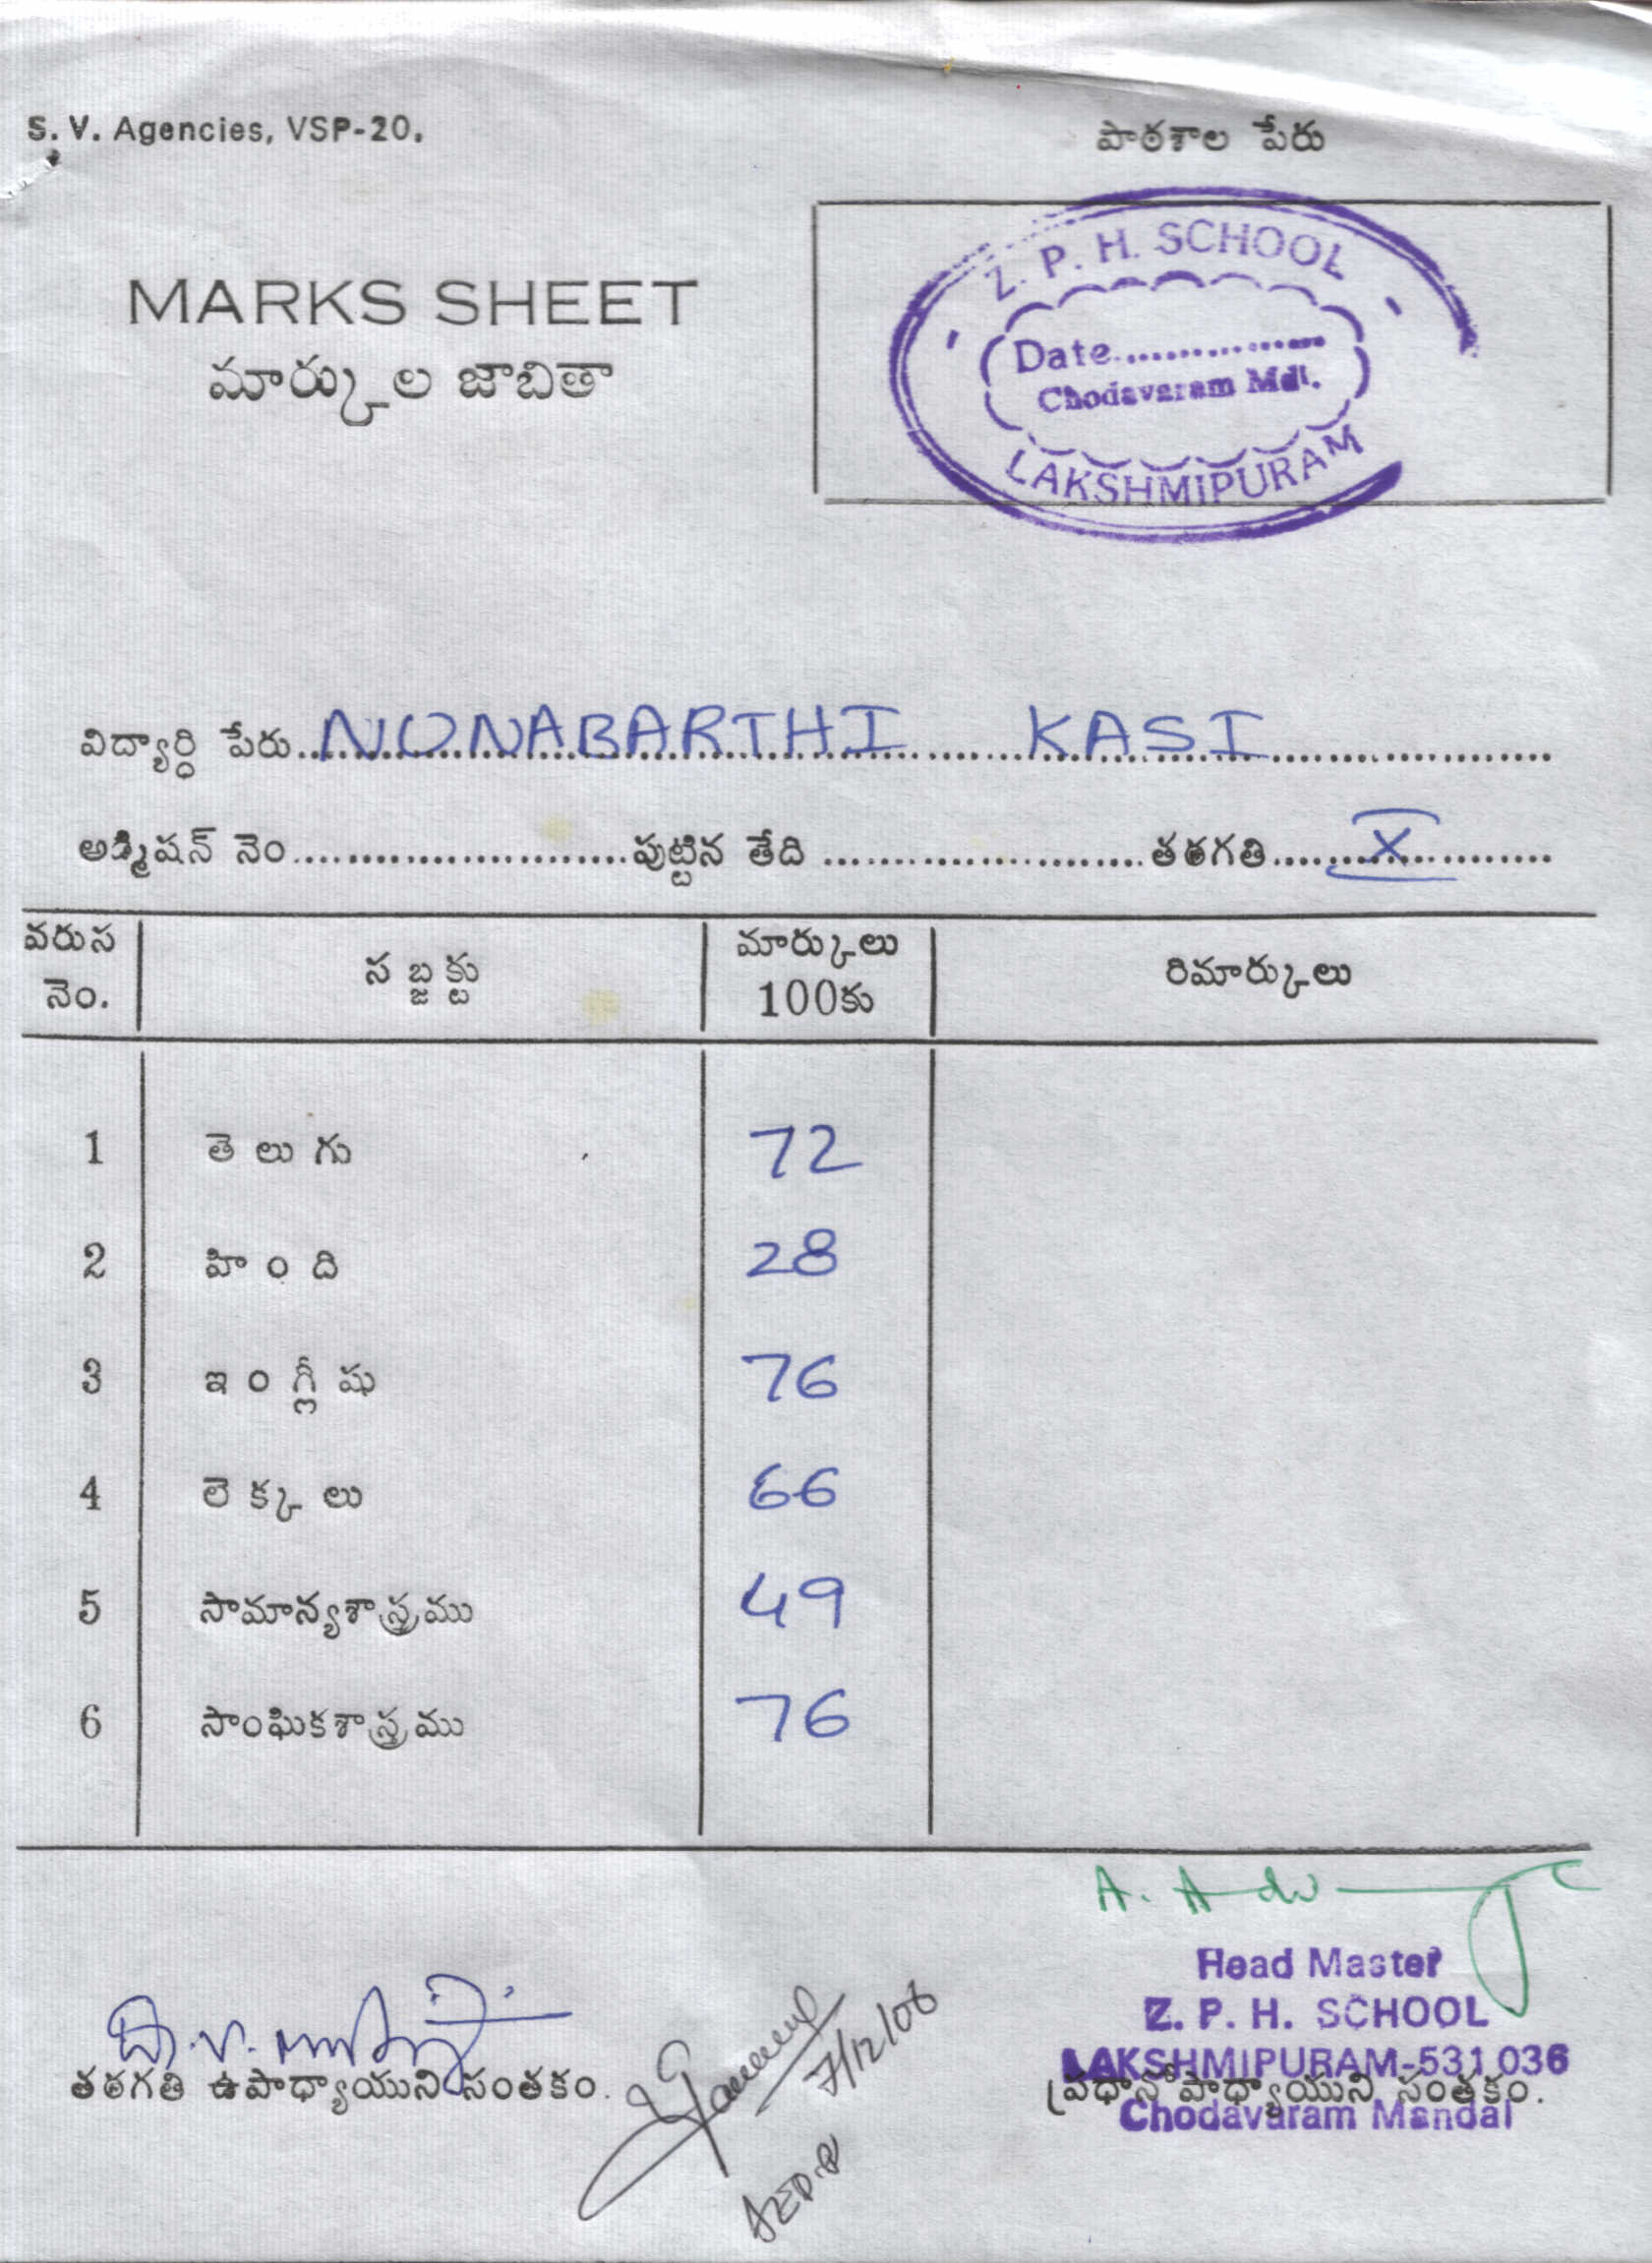 S. V. Agencies, VSP-20.
పాఠశాల పేరు
MARKS SHEET
మార్కుల జాబితా
Z. P. H. SCHOOL
Date
Chodavaram Mdl.
LAKSHMIPURAM
విద్యార్ధి పేరు NUNABARTHI KASI
అడ్మిషన్ నెం పుట్టిన తేది తరగతి X
వరుస నెం. సబ్జక్టు మార్కులు 100కు రిమార్కులు
1 తెలుగు 72
2 హింది 28
3 ఇంగ్లీషు 76
4 లెక్కలు 66
5 సామాన్యశాస్త్రము 49
6 సాంఘికశాస్త్రము 76
Head Master
Z. P. H. SCHOOL
LAKSHMIPURAM-531 036
Chodavaram Mandal
తరగతి ఉపాధ్యాయుని సంతకం.
ప్రధానోపాధ్యాయుని సంతకం.
7/12/06